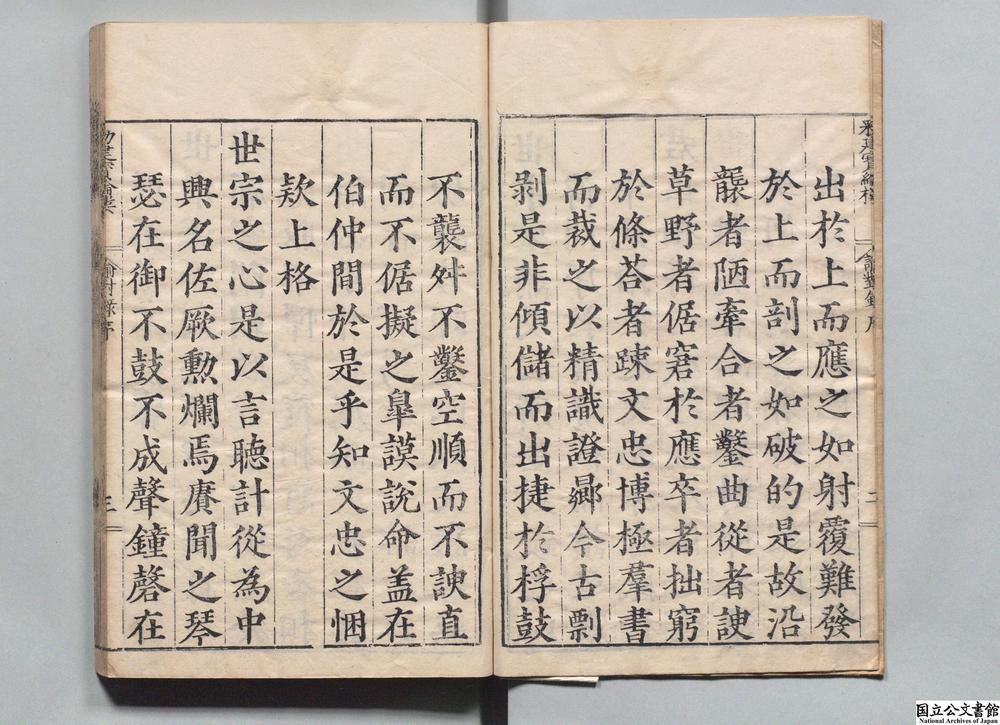 出於上而應之如射覆難發
於上而剖之如破的是故沿
襲者陋牽合者鑿曲從者諛
草野者倨窘於應卒者拙窮
於條荅者踈文忠博極羣書
而裁之以精識證鄉今古剽
剝是非傾儲而出捷於桴鼓
不襲舛不鑿空順而不諛直
而不倨擬之臯謨說命盖在
伯仲間於是乎知文忠之悃
欵上格
世宗之心是以言聽計從為中
興名佐厥勲爛焉賡聞之琴
瑟在御不鼓不成聲鐘磬在
二
三
国立公文書館
National Archives of Japan